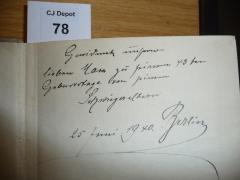 CJ Depot
78
Gewidmet unserm
lieben Hans zu seinem 43 ten
Geburtstage von seinen
Schwiegereltern
25 Juni 1940. Berlin